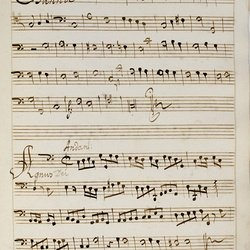 Andant
Agnus Dei